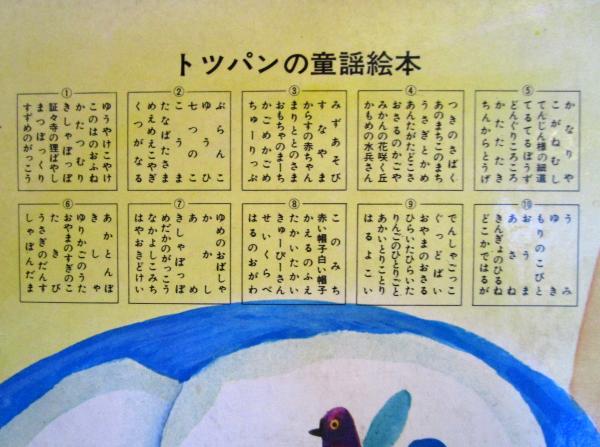 トツパンの童謡絵本
①
ゆうやけこやけ
このはのおふね
かたつむり
きしゃぽっぽ
証々寺の狸ばやし
まつぼっくり
すずめのがっこう
②
ぶらんこ
ゆうひ
七つのこ
こうま
たなばたさま
めえめえこやぎ
くつがなる
③
みずあそび
すなやま
からすの赤ちゃん
まりととのさま
おもちゃのまーち
かごめかごめ
ちゅーりっぷ
④
つきのさばく
あのまちこのまち
うさぎとかめ
あんたがたどこさ
おさるのかごや
みかんの花咲く丘
かもめの水兵さん
⑤
かなりや
こがねむし
てんじん様の細道
てるてるぼうず
どんぐりころころ
たたき
ちんからとうげ
⑥
あかとんぼ
きしゃ
ゆりかごのうた
おやまのすぎのこ
たきび
うさぎのだんす
しゃぼんだま
⑦
ゆめのおばしゃ
かかし
あめ
きしゃぽっぽ
めだかのがっこう
なかよしこみち
はやおきどけい
⑧
このみち
赤い帽子白い帽子
かえるのふえ
たかいたかい
きゅーぴーさん
せいくらべ
はるのおがわ
⑨
でんしゃごっこ
ぐっどばい
おやまのおさる
ひらいたひらいた
りんごのひとりごと
あかいとりことり
はるよこい
⑩
うみ
もりのこびと
ゆき
おうま
あさね
きんぎょのひるね
どこかではるが